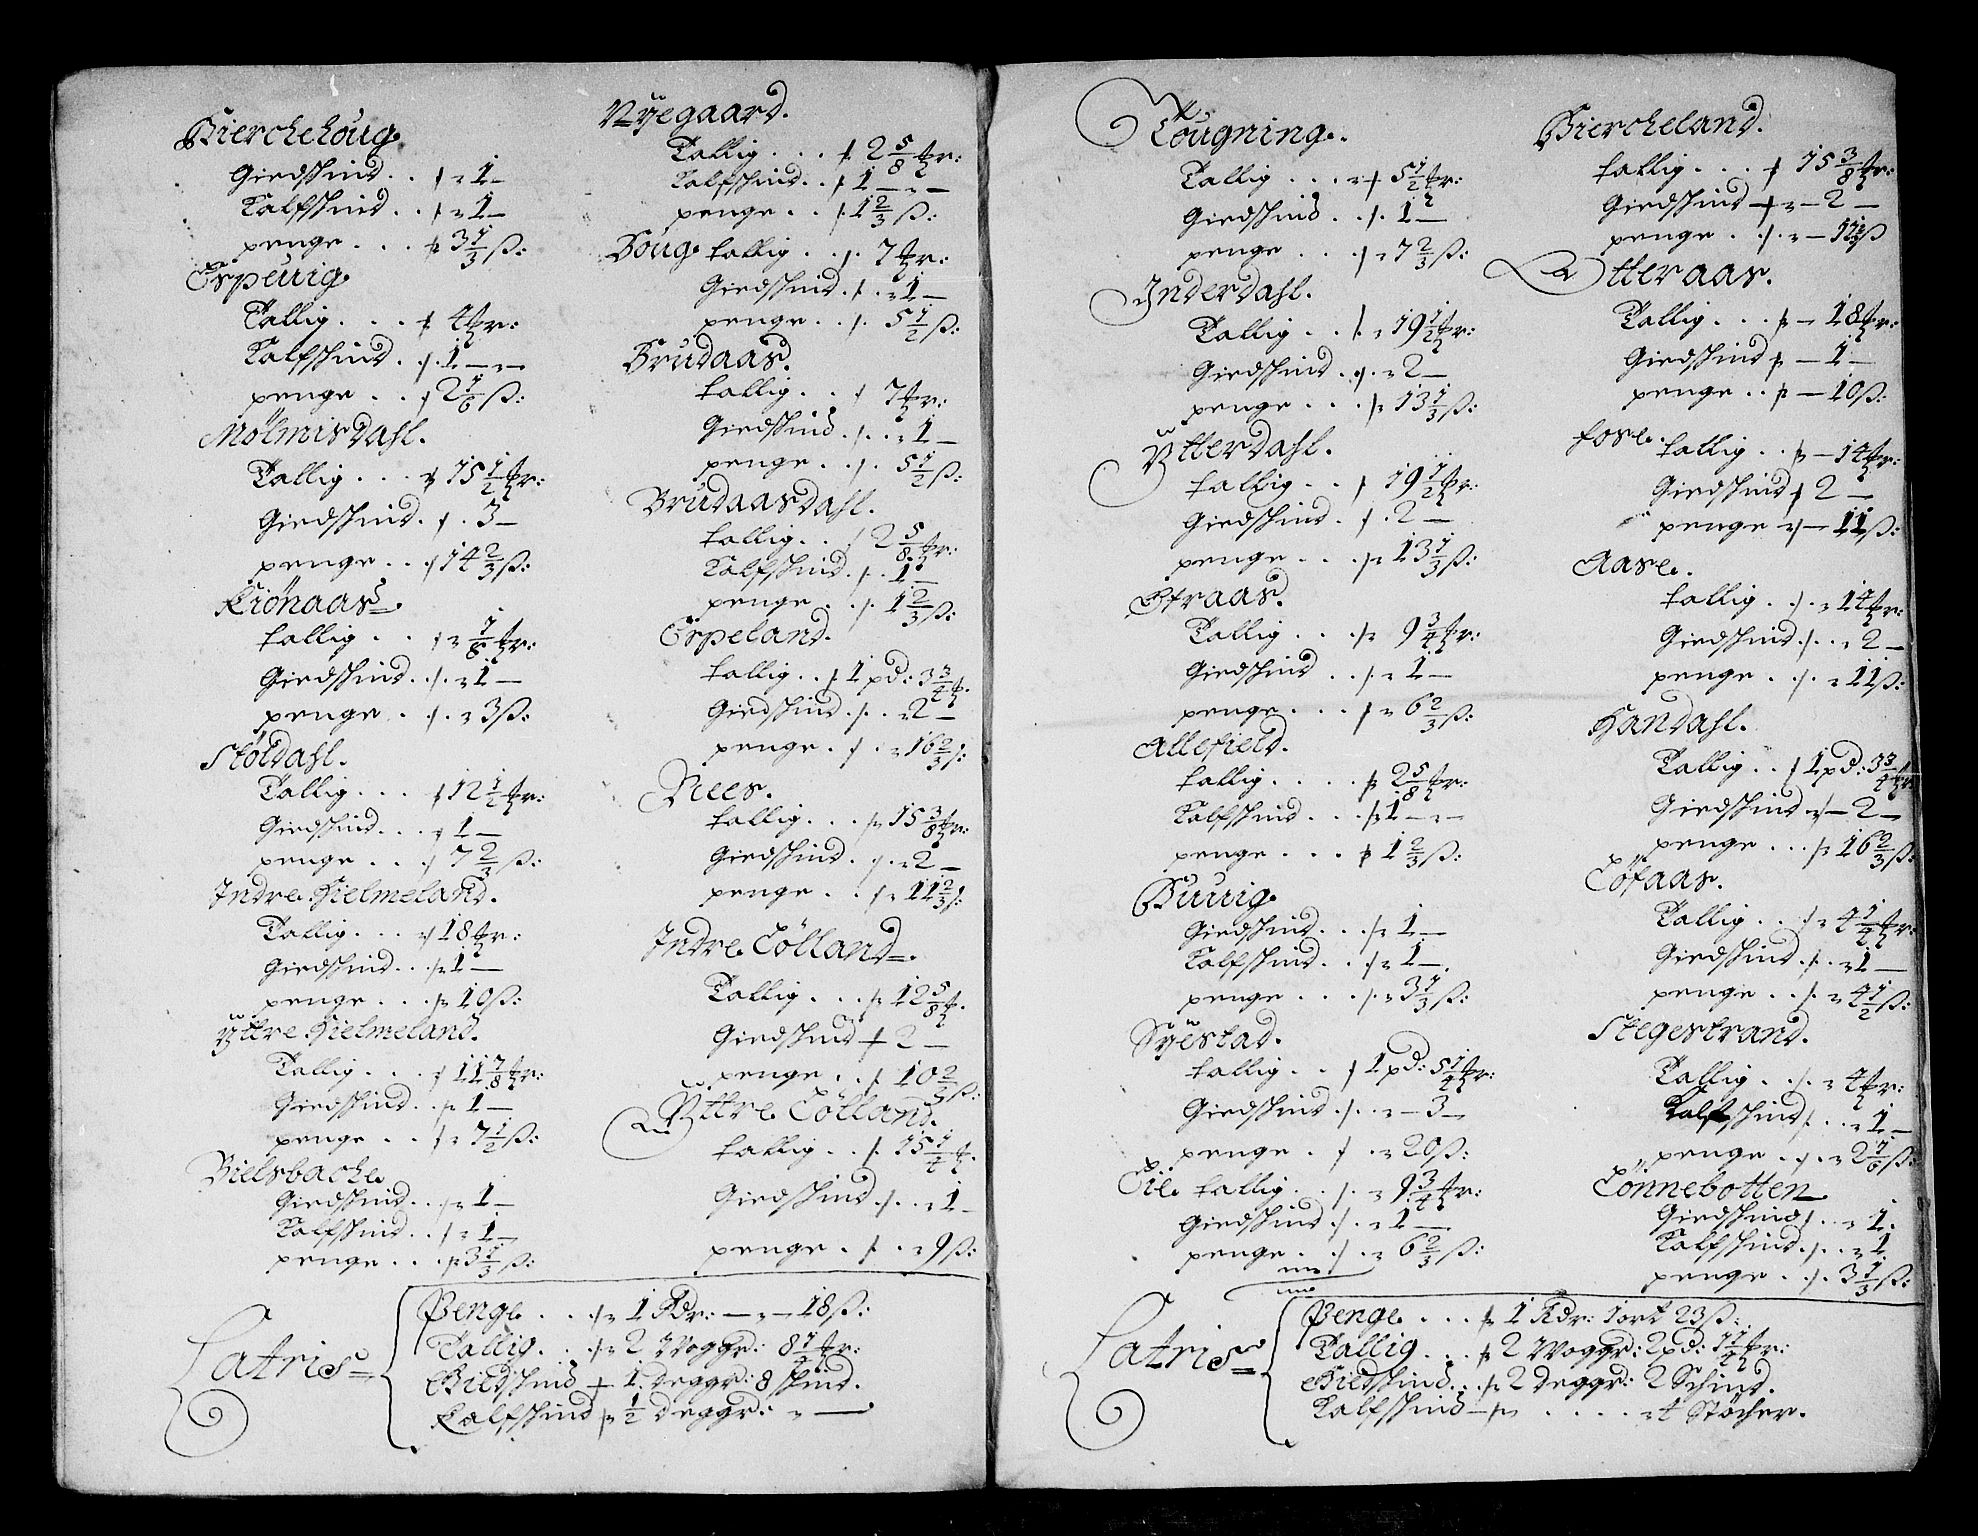 Bierchehoug.
Giedskind . . # 1 —
Kalfskind . . # 1 —
penge . . . # 3 1/3 ß:
Espeuig
Tallig . . . # 4 ℔r:
Kalfskind . # 1 — —
penge . . # 2 1/6 ß:
Mölmisdahl.
Tallig . . . # 15 1/2 ℔r:
Giedskind . # . 3 —
penge . . # 14 2/3 ß:
Kiönaas.
tallig . . # 7/8 ℔r:
Giedskind . # 1 —
penge . # 3 ß:
Stöldahl.
Tallig . . . # 12 1/2 ℔r:
Giedskind . . . # 1 —
penge . . . # 7 2/3 ß:
Indre Hielmeland.
Tallig . . . # 18 ℔r:
Giedskind . . # 1 —
penge . . . # 10 ß:
Ÿttre Hielmeland.
Tallig . . . # 11 7/8 ℔r:
Giedskind . . # 1 —
penge . . # 7 1/2 ß:
Bielsbache
Giedskind . . # 1 —
Kalfskind . . # 1 —
penge . . . # 3 1/3 ß:
Nÿegaard.
Tallig . . . # 2 5/8 ℔r:
Kalfskind . . # 1 — —
penge . . # 1 2/3 ß:
Houg. tallig . . # 7 ℔r:
Giedskind . # 1 —
penge . . # 5 1/2 ß:
Brudaas.
tallig . . # 7 ℔r:
Giedskind . # . . 1 —
penge . . # 5 1/2 ß:
Brudaasdahl.
tallig . . # 2 5/8 ℔r:
Kalfskind . # . 1 —
penge . . # 1 2/3 ß:
Espeland.
tallig . . # 1 pd: 3 3/4 ℔.
Giedskind . # . 2 —
penge . # . 16 2/3 ß:
Nees.
tallig . . . # 15 3/8 ℔r:
Giedskind . # 2 —
penge . . # 11 2/3 ß:
Indre Tölland.
Tallig . . . # 12 5/8 ℔.
Giedskind # 2 —
penge . . # 10 2/3 ß:
Ÿttre Tölland.
tallig . . # 15 1/4 ℔.
Giedskind . # . . 1 —
penge . # . . 9 ß:
Latris
Penge . . . # 1 Rdr: — — 18 ß:
Tallig . . # 2 Woggr: 8 1/4 ℔r:
Giedskind # 1. deggr: 8 skind.
Kalfskind # 1/2 deggr: —
Tougning.
Tallig . . . # 5 1/2 ℔r:
Giedskind . . # 1 —
penge . . . # 7 2/3 ß:
Inderdahl.
Tallig . . # 19 1/2 ℔r:
Giedskind . # 2 —
penge . . . # 13 1/3 ß:
Ÿtterdahl.
tallig . . # 19 1/2 ℔r:
Giedskind . # . 2 —
penge . . . # 13 1/3 ß:
Straas.
Tallig . . . # 9 3/4 ℔r:
Giedskind . . # 1 —
penge . . . # 6 2/3 ß:
Allefield.
tallig . . . . # 2 5/8 ℔r:
Kalfskind . . . # 1 — —
penge . . . # 1 2/3 ß:
Buuig
Giedskind . . . # 1 —
Kalfskind . . # 1 —
penge . . . # 3 1/3 ß:
Sÿestad.
tallig . . # 1 pd: 5 1/4 ℔r:
Giedskind . # — 3 —
penge . # 20 ß:
Öie tallig . . # 9 3/4 ℔r:
Giedskind . # 1 —
penge . # 6 2/3 ß:
Biercheland.
tallig . . . # 15 3/8 ℔r:
Giedskind # — 2 —
penge . # — 11 2/3 ß
Otteraas.
Tallig . . . # — 18 ℔r:
Giedskind # — 1 —
penge . . # — 10 ß:
fose. tallig . . # — 14 ℔r:
Giedskind # 2 —
penge # — 11 ß:
Aase.
tallig . # 14 ℔r:
Giedskind . # . 2 —
penge . # 11 ß:
Handahl.
Tallig . . # 1 pd: 3 3/4 ℔r:
Giedskind # — 2 —
penge . . . # 16 2/3 ß:
Töfaas.
Tallig . . # 4 1/4 ℔r:
Giedskind . # 1 —
penge . . # 4 1/2 ß:
Stegestrand.
Tallig . # 4 ℔r:
Kalfskind # . . 1 —
penge . # 2 1/6 ß:
Tönnebotten
Giedskind # . . 1.
Kalfskind . # . . 1
penge . # . 3 1/3 ß:
Latris
Penge . . . # 1 Rdr: 1 ort 23 ß:
Tallig . . . # 2 Woggr: 2 pd: 1 1/4 ℔r:
Giedskind . . # 2 deggr: 2 Schind.
Kalfskind # . . . . . 4 Stöcher.